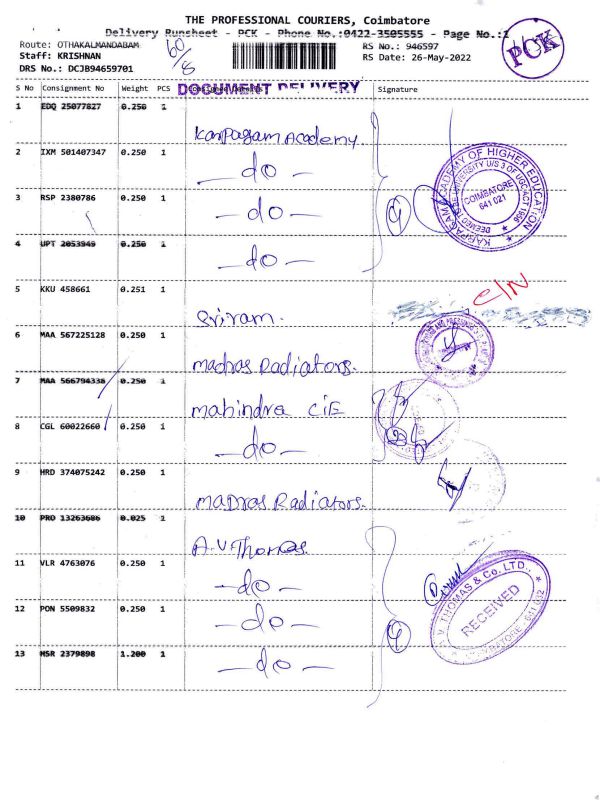 THE PROFESSIONAL COURIERS, Coimbatore
Delivery Runsheet - PCK - Phone No.:0422-3505555 - Page No.:1
Route: OTHAKALMANDABAM
RS No.: 946597
Staff: KRISHNAN
RS Date: 26-May-2022
DRS No.: DCJB94659701
60/8
PCK
S No Consignment No Weight PCS Signature
DOCUMENT DELIVERY
1 EDQ 25077827 0.250 1
Karpagam Academy.
2 IXM 501407347 0.250 1
— do —
3 RSP 2380786 0.250 1
— do —
4 UPT 2053949 0.250 1
— do —
4
KARPAGAM ACADEMY OF HIGHER EDUCATION
DEEMED TO BE UNIVERSITY U/S 3 OF UGC ACT 1956
COIMBATORE
641 021
5 KKU 458661 0.251 1
Sriram.
C/N
6 MAA 567225128 0.250 1
Madras Radiators.
7 MAA 566794338 0.250 1
Mahindra CIE
8 CGL 60022660 0.250 1
— do —
2
9 HRD 374075242 0.250 1
Madras Radiators.
10 PRO 13263686 0.025 1
A.V. Thomas.
11 VLR 4763076 0.250 1
— do —
12 PON 5509832 0.250 1
— do —
13 MSR 2379898 1.200 1
— do —
4
V. THOMAS & Co. LTD.,
RECEIVED
COIMBATORE - 641 032